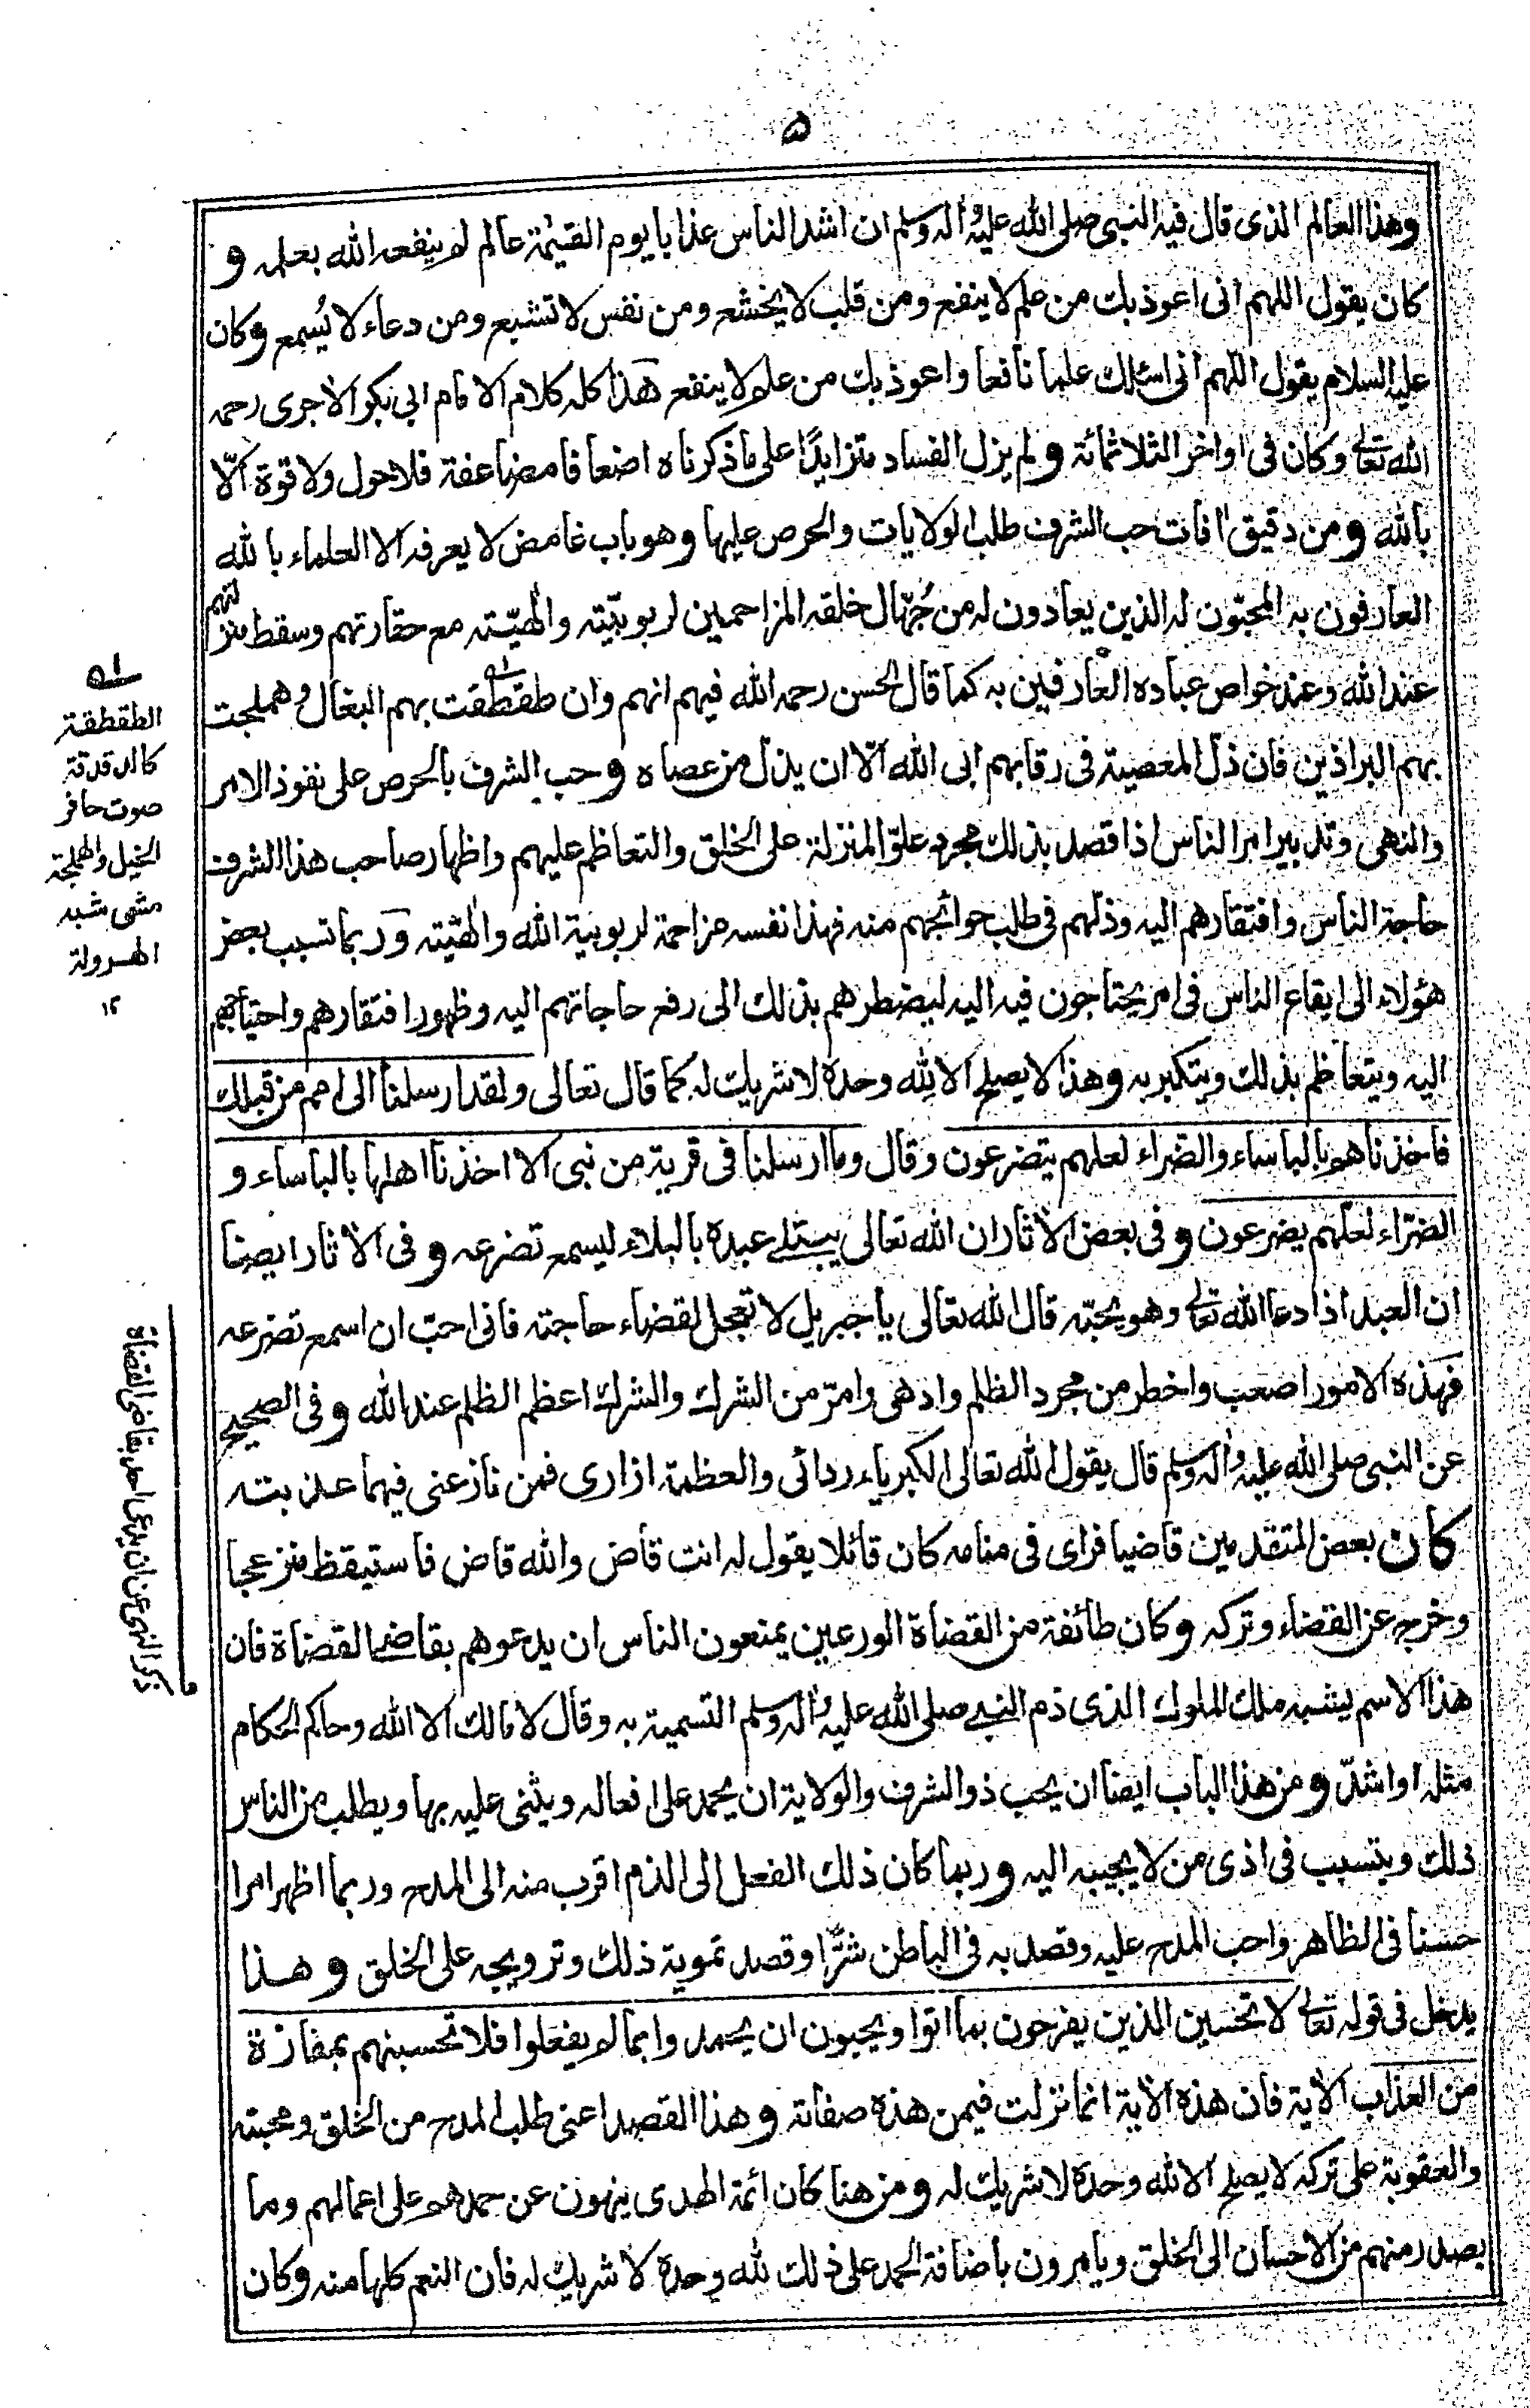 ۵
وهذا العالم الذى قال فيه النبى صلى الله عليه واله وسلم ان اشد الناس عذابا يوم القيٰمة عالم لم ينفعه الله بعلمه و
كان يقول اللهم انى اعوذ بك من علم لا ينفع ومن قلب لا يخشع ومن نفس لا تشبع ومن دعاء لا يُسمع وكان
عليه السلام يقول اللهم انى اسئلك علما نافعا واعوذ بك من علم لا ينفع هذا كله كلام الامام ابى بكر الاجرى رحمه
الله تعالى وكان فى اواخر الثلاثمائة ولم يزل الفساد متزايدًا على ماذكرناه اضعافا مضاعفة فلاحول ولا قوة الّا
بالله ومن دقيق اٰفات حب الشرف طلب الولايات والحرص عليها وهو باب غامض لا يعرفه الا العلماء بالله
العارفون به المحبّون له الذين يعادون له من جُهّال خلقه المزاحمين لربوبيّته والٰهيّته مع حقارتهم وسقط منزلتهم
عند الله وعند خواص عباده العارفين به كما قال الحسن رحمه الله فيهم انهم وان طقطقت بهم البغال وهملجت
بهم البراذين فان ذلّ المعصية فى رقابهم ابى الله الّا ان يذل من عصاه وحب الشرف بالحرص على نفوذ الامر
والنهى وتدبير امر الناس اذا قصد بذلك مجرد علوّ المنزلة على الخلق والتعاظم عليهم واظهار صاحب هذا الشرف
حاجة الناس وافتقارهم اليه وذلّهم فى طلب حوائجهم منه فهذا نفسه مزاحمة لربوبية الله والٰهيّته وربما تسبب بعض
هؤلاء الى ايقاع الناس فى امر يحتاجون فيه اليه ليضطرهم بذلك الى رفع حاجاتهم اليه وظهور افتقارهم واحتياجهم
اليه ويتعاظم بذلك ويتكبر به وهذا لا يصلح الا لله وحده لا شريك له كما قال تعالى ولقد ارسلنا الى امم من قبلك
فاخذناهم بالباساء والضراء لعلهم يتضرعون وقال وما ارسلنا فى قرية من نبى الا اخذنا اهلها بالباساء و
الضرّاء لعلّهم يضرعون وفى بعض الاٰثار ان الله تعالى يبتلى عبده بالبلاء ليسمع تضرعه وفى الاٰثار ايضا
ان العبد اذا دعا الله تعالى وهو يحبّه قال الله تعالى يا جبريل لا تعجل لقضاء حاجته فانى احبّ ان اسمع تضرعه
فهذه الامور اصعب واخطر من مجرد الظلم وادهى وامرّ من الشرك والشرك اعظم الظلم عند الله وفى الصحيح
عن النبى صلى الله عليه واله وسلم قال يقول الله تعالى الكبرياء ردائى والعظمة ازارى فمن نازعنى فيهما عذبته
كان بعض المتقدمين قاضيا فراى فى منامه كان قائلا يقول له انت قاض والله قاض فاستيقظ منزعجا
وخرج عن القضاء وتركه وكان طائفة من القضاة الورعين يمنعون الناس ان يدعوهم بقاضى القضاة فان
هذا الاسم يشبه ملك الملوك الذى ذم النبى صلى الله عليه واله وسلم التسمية به وقال لا مالك الا الله وحاكم الحكام
مثله او اشدّ ومن هذا الباب ايضا ان يحب ذو الشرف والولاية ان يحمد على افعاله ويثنى عليه بها ويطلب من الناس
ذلك ويتسبب فى اذى من لا يجيبه اليه وربما كان ذلك الفعل الى الذم اقرب منه الى المدح وربما اظهر امرا
حسنا فى الظاهر واحب المدح عليه وقصد به فى الباطن شرًّا وقصد تموية ذلك وترويجه على الخلق وهذا
يدخل فى قوله تعالى لا تحسبن الذين يفرحون بما اتوا ويحبون ان يحمدوا بما لم يفعلوا فلا تحسبنهم بمفازة
من العذاب الاٰية فان هذه الاٰية انما نزلت فيمن هذه صفاته وهذا القصد اعنى طلب المدح من الخلق ومحبته
والعقوبة على تركه لا يصلح الا لله وحده لا شريك له ومن هنا كان ائمة الهدى ينهون عن حمدهم على اعمالهم وما
يصدر منهم من الاحسان الى الخلق ويامرون باضافة الحمد على ذلك لله وحده لا شريك له فان النعم كلها منه وكان
الطقطقة
كالدقدقة
صوت حافر
الخيل والهملجة
مشى شبه
الهرولة
١٢
ذكر النهى عن ان يدعى احد بقاضى القضاة